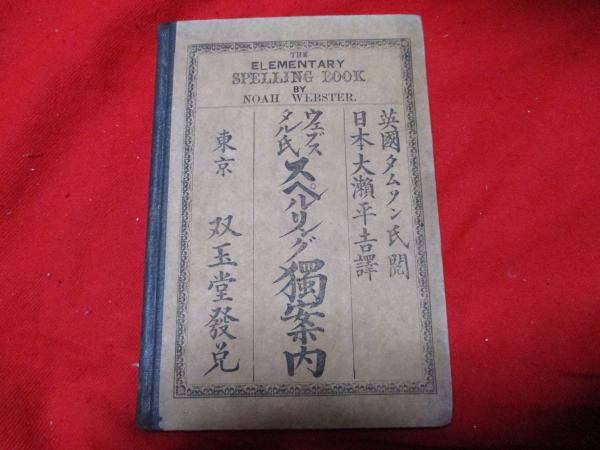 THE
ELEMENTARY
SPELLING BOOK
BY
NOAH WEBSTER.
英國タムソン氏閲
日本大瀬平吉譯
ウェブスタル氏
スペルリング獨案内
東京 双玉堂發兌